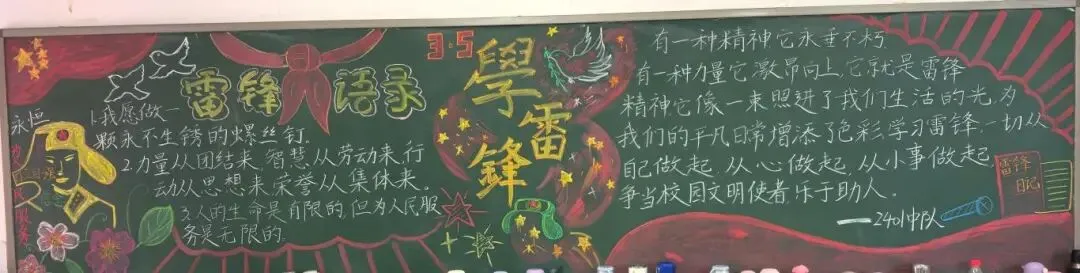 雷锋语录
永恒
1.我愿做一
颗永不生锈的螺丝钉.
2.力量从团结来,智慧从劳动来,行
动从思想来,荣誉从集体来。
3.人的生命是有限的,但为人民服
务是无限的.
3·5
學雷鋒
有一种精神它永垂不朽
有一种力量它激昂向上,它就是雷锋
精神,它像一束照进了我们生活的光,为
我们的平凡日常增添了色彩,学习雷锋,一切从
自己做起,从心做起,从小事做起,
争当校园文明使者,乐于助人.
——2401中队
雷锋
日记